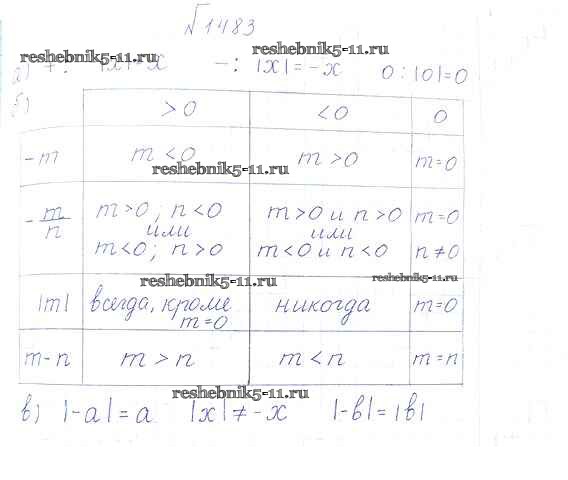 №1483
reshebnik5-11.ru reshebnik5-11.ru
а) +: |x|=x −: |x|=−x 0: |0|=0
б)
>0 <0 0
−m m<0 m>0 m=0
reshebnik5-11.ru
−m/n m>0; n<0 или m<0; n>0 m>0 и n>0 или m<0 и n<0 m=0 n≠0
reshebnik5-11.ru reshebnik5-11.ru
|m| всегда, кроме m=0 никогда m=0
m−n m>n m<n m=n
reshebnik5-11.ru
в) |−a|=a |x|≠−x |−в|=|в|